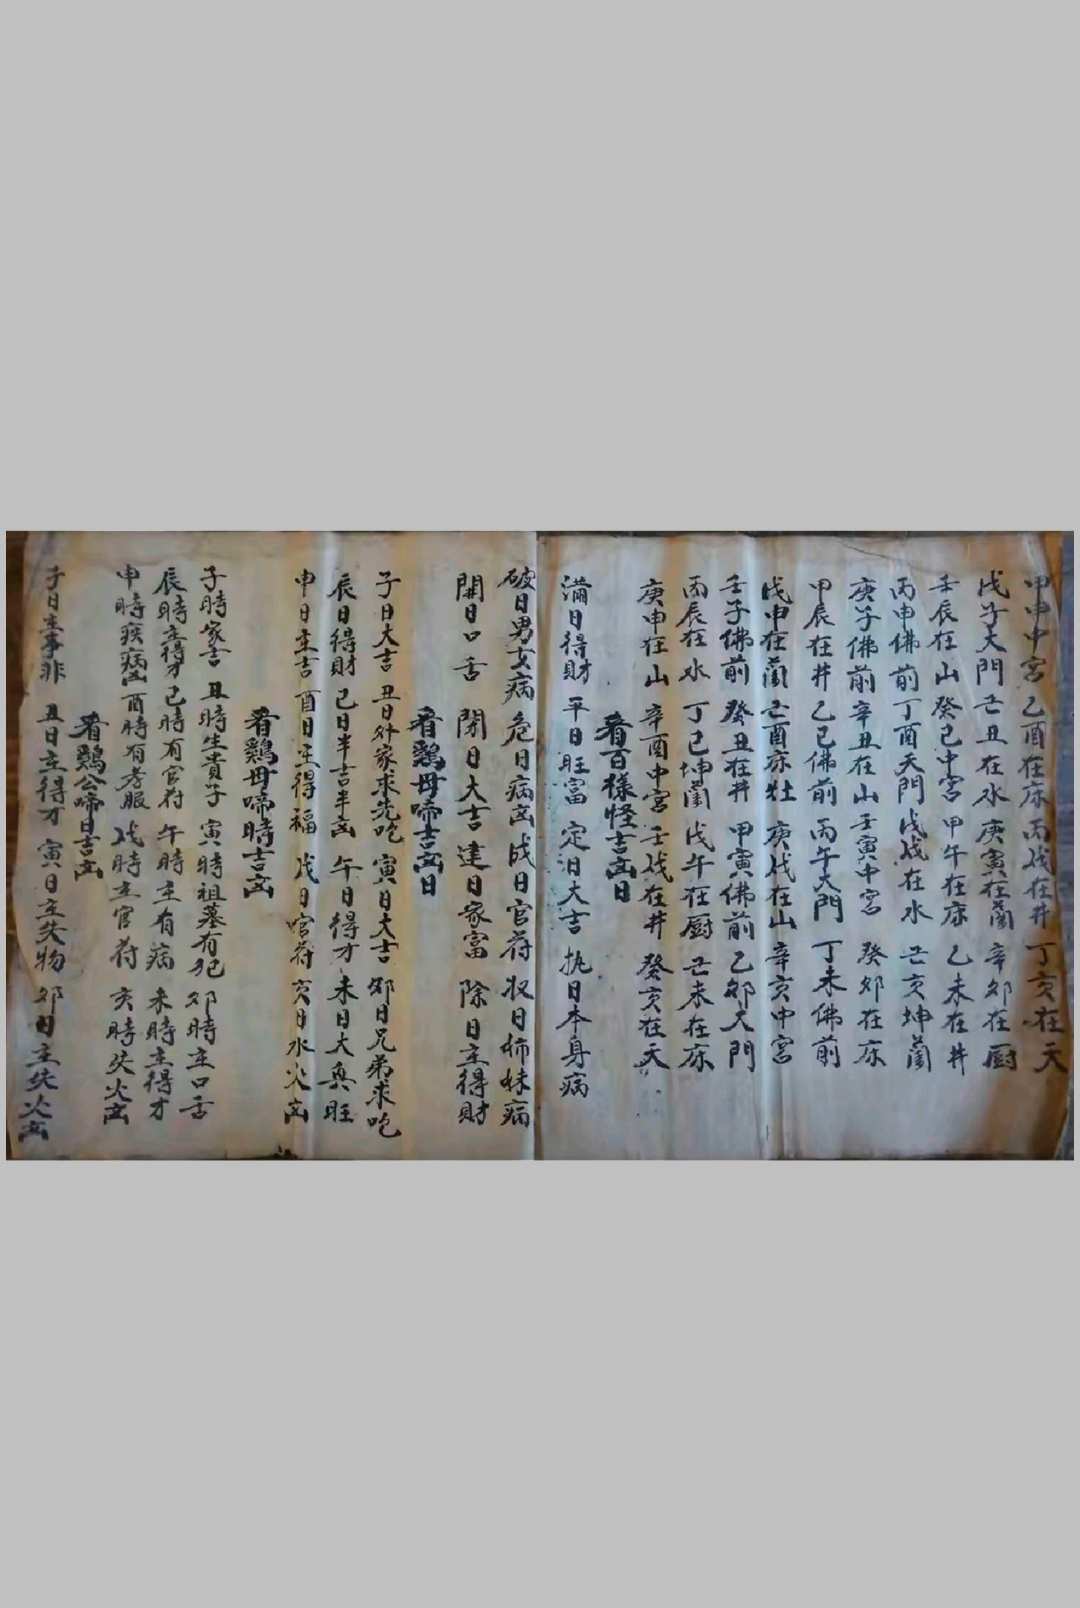 甲申中宮 乙酉在床 丙戌在井 丁亥在天
戊子大門 己丑在水 庚寅在蘭 辛卯在厨
壬辰在山 癸巳中宮 甲午在床 乙未在井
丙申佛前 丁酉天門 戊戌在水 己亥坤蘭
庚子佛前 辛丑在山 壬寅中宮 癸卯在床
甲辰在井 乙巳佛前 丙午大門 丁未佛前
戊申在蘭 己酉床灶 庚戌在山 辛亥中宮
壬子佛前 癸丑在井 甲寅佛前 乙卯大門
丙辰在水 丁巳坤蘭 戊午在厨 己未在床
庚申在山 辛酉中宮 壬戌在井 癸亥在天
看百樣怪吉凶日
滿日得財 平日旺富 定日大吉 执日本身病
破日男女病 危日病凶 成日官符 收日姉妹病
開日口舌 閉日大吉 建日家富 除日主得財
看鷄母啼吉凶日
子日大吉 丑日外家求先吃 寅日大吉 卯日兄弟求吃
辰日得財 巳日半吉半凶 午日得才 未日大興旺
申日主吉 酉日主得福 戌日官符 亥日水火凶
看鷄母啼時吉凶
子時家吉 丑時生貴子 寅時祖墓有犯 卯時主口舌
辰時主得才 巳時有官符 午時主有病 未時主得才
申時疾病凶 酉時有孝服 戌時主官符 亥時失火凶
看鷄公啼日吉凶
子日主事非 丑日主得才 寅日主失物 卯日主失火凶